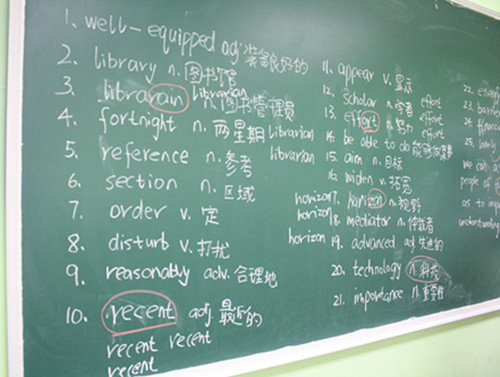 1. well-equipped adj. 装备良好的
2. library n. 图书馆
3. librarain librarian n. 图书管理员
4. fortnight n. 两星期 librarian
5. reference n. 参考 librarian
6. section n. 区域
7. order v. 定
8. disturb v. 打扰
9. reasonably adv. 合理地
10. recent adj. 最近的
recent recent
recent
11. appear v. 显示
12. scholar n. 学者 effort
13. effort n. 努力 effort
14. be able to do 能够做某事
15. aim n. 目标
16. widen v. 拓宽
horizon 17. horizon n. 视野
horizon 18. mediator n. 仲裁者
horizon 19. advanced adj. 先进的
20. technology n. 科技
21. importance n. 重要性
22.
23. barrier
24.
25.
we can
people of
as to imp
understanding